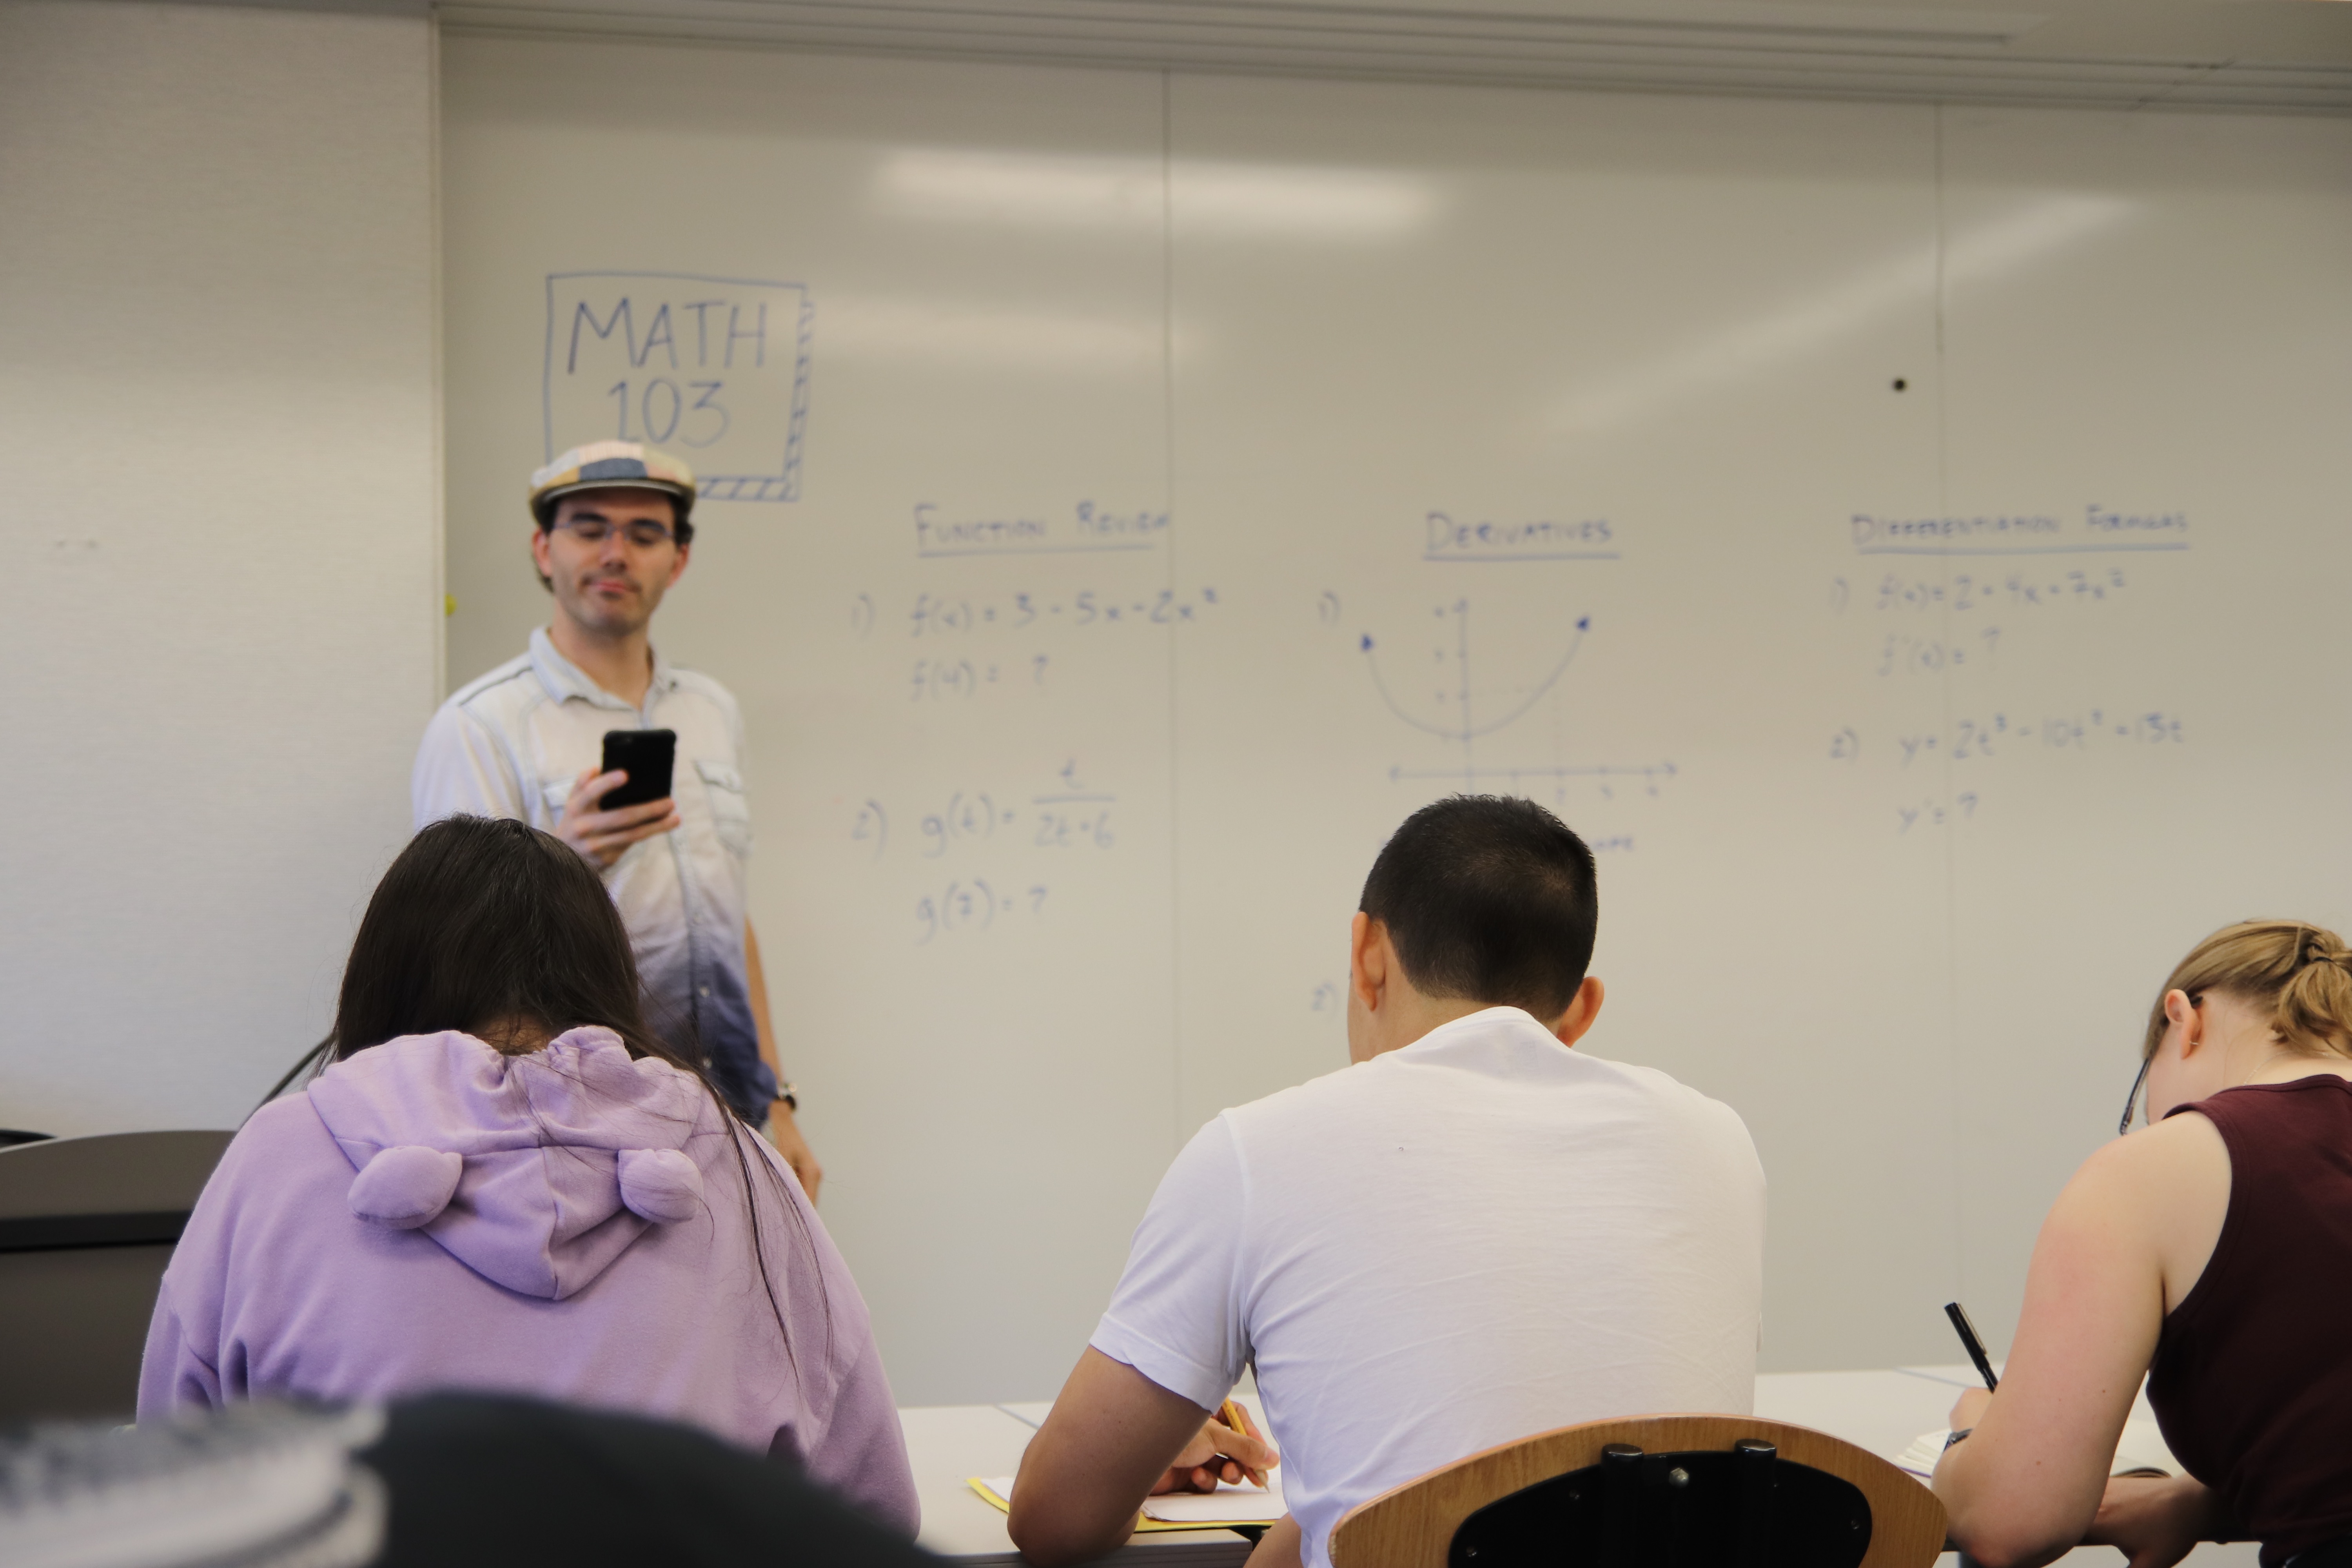 MATH
103
FUNCTION REVIEW
1) f(x) = 3 - 5x - 2x²
f(4) = ?
2) g(t) = t
2t + 6
g(7) = ?
DERIVATIVES
1)
2)
DIFFERENTIATION FORMULAS
1)
f'(x) = ?
2)
y' = ?